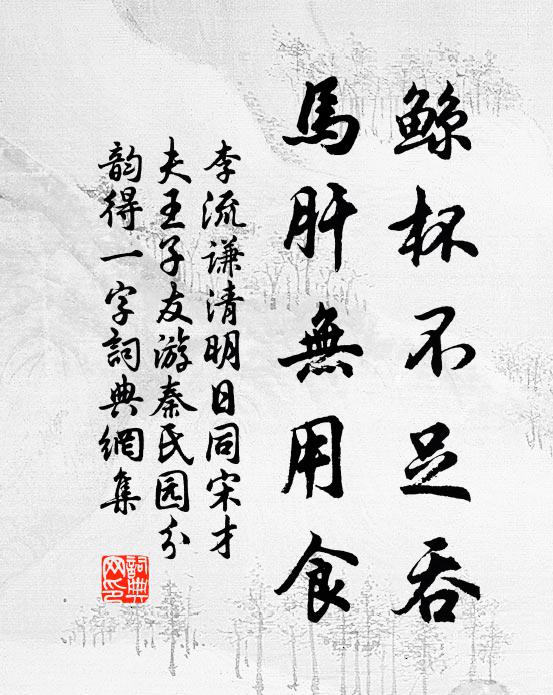 鲸杯不足吞
馬肝無用食
李流谦清明日同宋才
夫王子友游秦氏园分
韵得一字詞典網集
詞典
网印